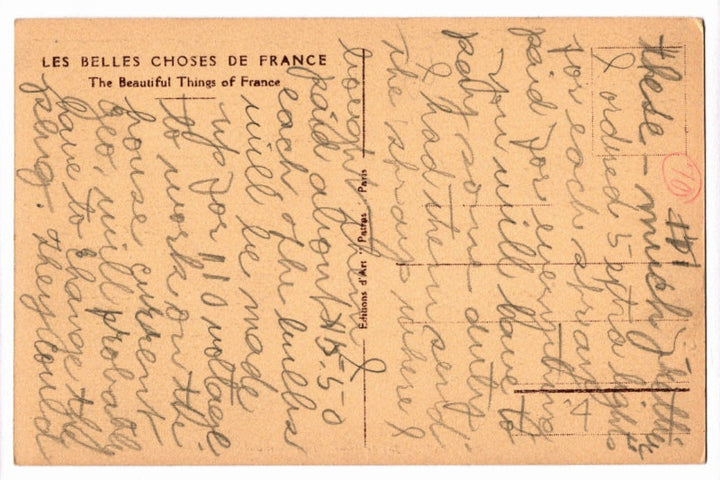 LES BELLES CHOSES DE FRANCE
The Beautiful Things of France
Editions d'Art Pastes Paris
#1
these - much
I ordered 5 extra lights
for each spray I
paid for everything
You will have to
pay some duty
I had them send
the sprays where I
bought them I
paid about $5.50
each the bulbs
will be made
up for 110 voltage
to work on the
house current
Geo. will probably
have to change the
plug. They could